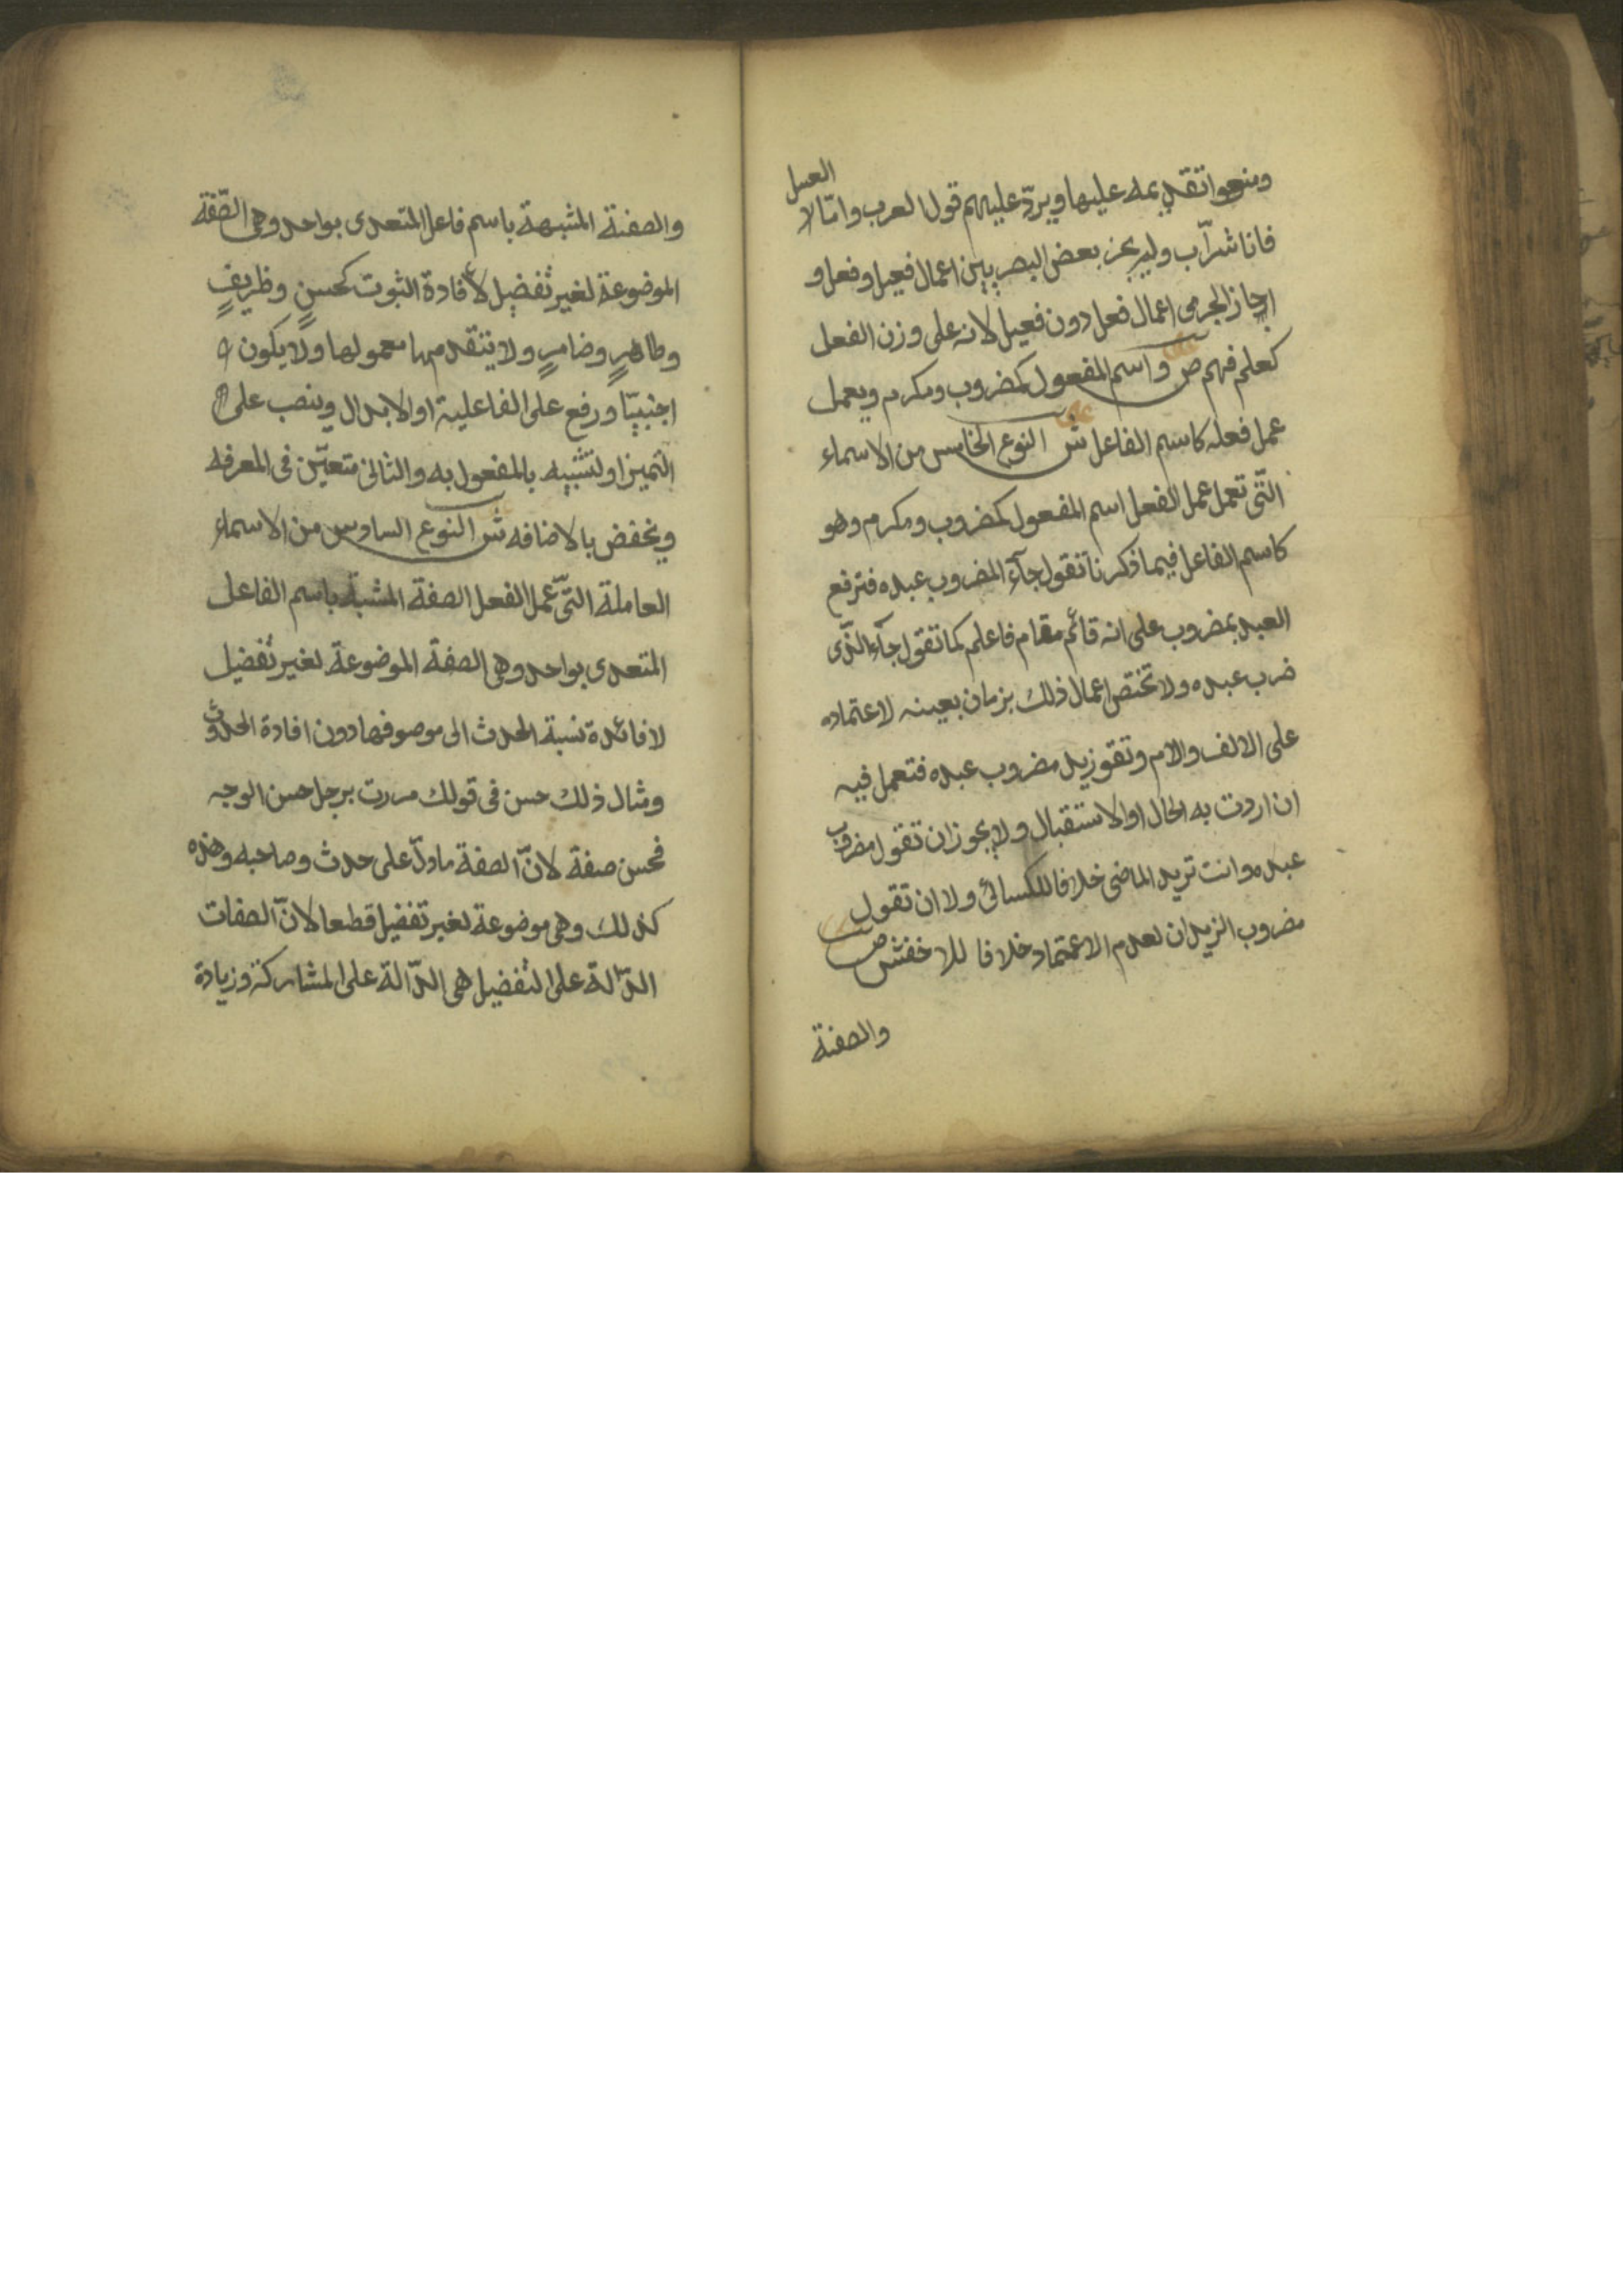 ومنعوا تقديمه عليها ويردّ عليهم قول العرب وامّا العسل
فانا شرّاب ولم يجز بعض البصريين اعمال فعيل وفعل و
اجاز الجرمى اعمال فعل دون فعيل لانه على وزن الفعل
كعلم فهم ص واسم المفعول كمضروب ومكرم ويعمل
عمل فعله كاسم الفاعل ش النوع الخامس من الاسماء
التّى تعمل عمل الفعل اسم المفعول كمضروب ومكرم وهو
كاسم الفاعل فيما ذكرنا تقول جآء المضروب عبده فترفع
العبد بمضروب على انه قائم مقام فاعلم كما تقول جآء الذّى
ضرب عبده ولا تختص اعمال ذلك بزمان بعينه لاعتماده
على الالف والام وتقو زيد مضروب عبده فتعمل فيه
ان اردت به الحال او الاستقبال ولا يجوز ان تقول مضروب
عبده وانت تريد الماضى خلافا للكسائى ولا ان تقول
مضروب الزيدان لعدم الاعتماد خلافا للاخفش ص
والصفة
والصفة المشبهة باسم فاعل المتعدى بواحد وهى الصّفة
الموضوعة لغير تفضيل لافادة الثبوت كحسنٍ وظريفٍ
وطاهرٍ وضامرٍ ولا يتقدمها معمولها ولا يكون
اجنبيّا ورفع على الفاعلية او الابدال وينصب على
التميز او لتشبيه بالمفعول به والثانى متعيّن فى المعرفه
ويخفض بالاضافه ش النوع السادس من الاسماء
العاملة التّى عمل الفعل الصفة المشبة باسم الفاعل
المتعدى بواحد وهى الصفة الموضوعة لغير تفضيل
لافائدة نسبة الحدث الى موصوفها دون افادة الحدوث
ومثال ذلك حسن فى قولك مررت برجل حسن الوجه
فحسن صفة لانّ الصفة مادلّ على حدث وصاحبه وهذه
كذلك وهى موضوعة لغير تفضيل قطعا لانّ الصفات
الدّالة على التفضيل هى الدّالة على المشاركة وزيادة